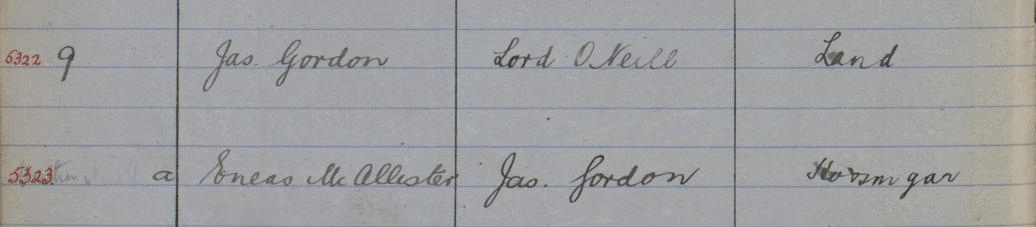 5322 9 Jas. Gordon Lord O'Neill Land
5323 a Eneas McAllister Jas. Gordon